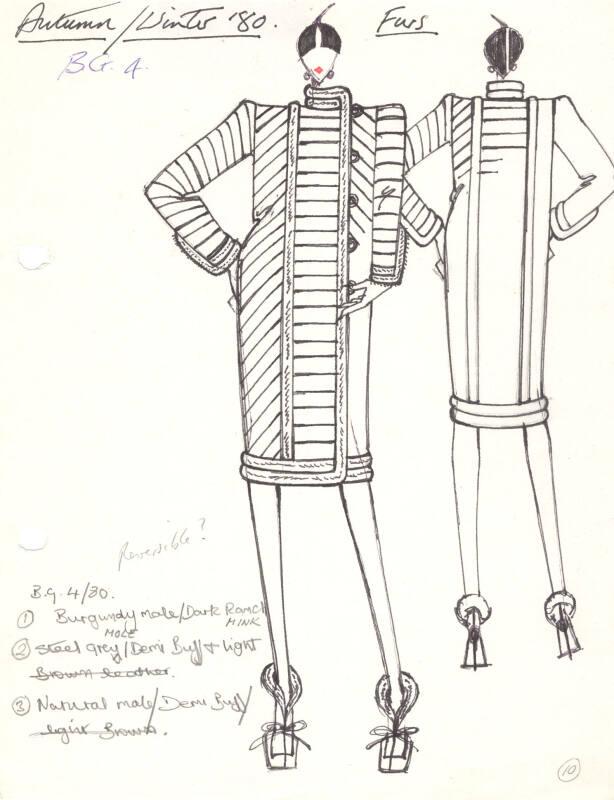 Autumn/Winter '80.
Furs
BG. 4.
Reversible?
B.G. 4/80.
① Burgundy mole/Dark Ranch
MINK
MOLE
② Steel grey/Demi Buff + light
Brown leather.
③ Natural mole/Demi Buff/
light Brown.
10